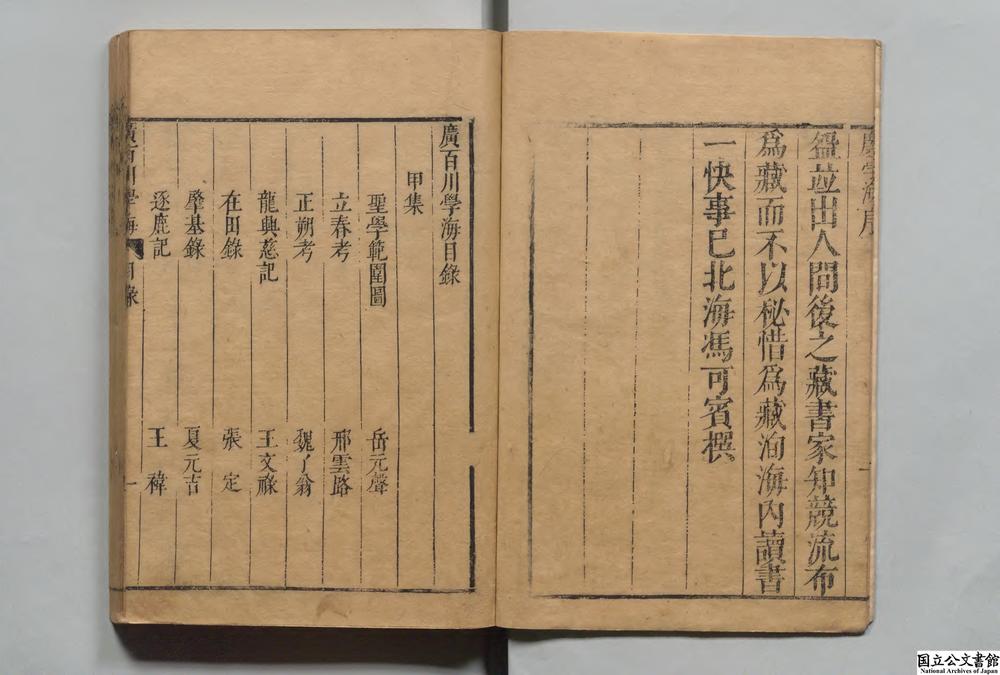 盤並出人間後之藏書家知競流布
爲藏而不以秘惜爲藏洵海內讀書
一快事巳北海馮可賓撰
廣百川學海目錄
甲集
聖學範圍圖 岳元聲
立春考 邢雲路
正朔考 魏了翁
龍興慈記 王文祿
在田錄 張定
壟基錄 夏元吉
逐鹿記 王禕
廣百川學海 目錄 一
国立公文書館
National Archives of Japan